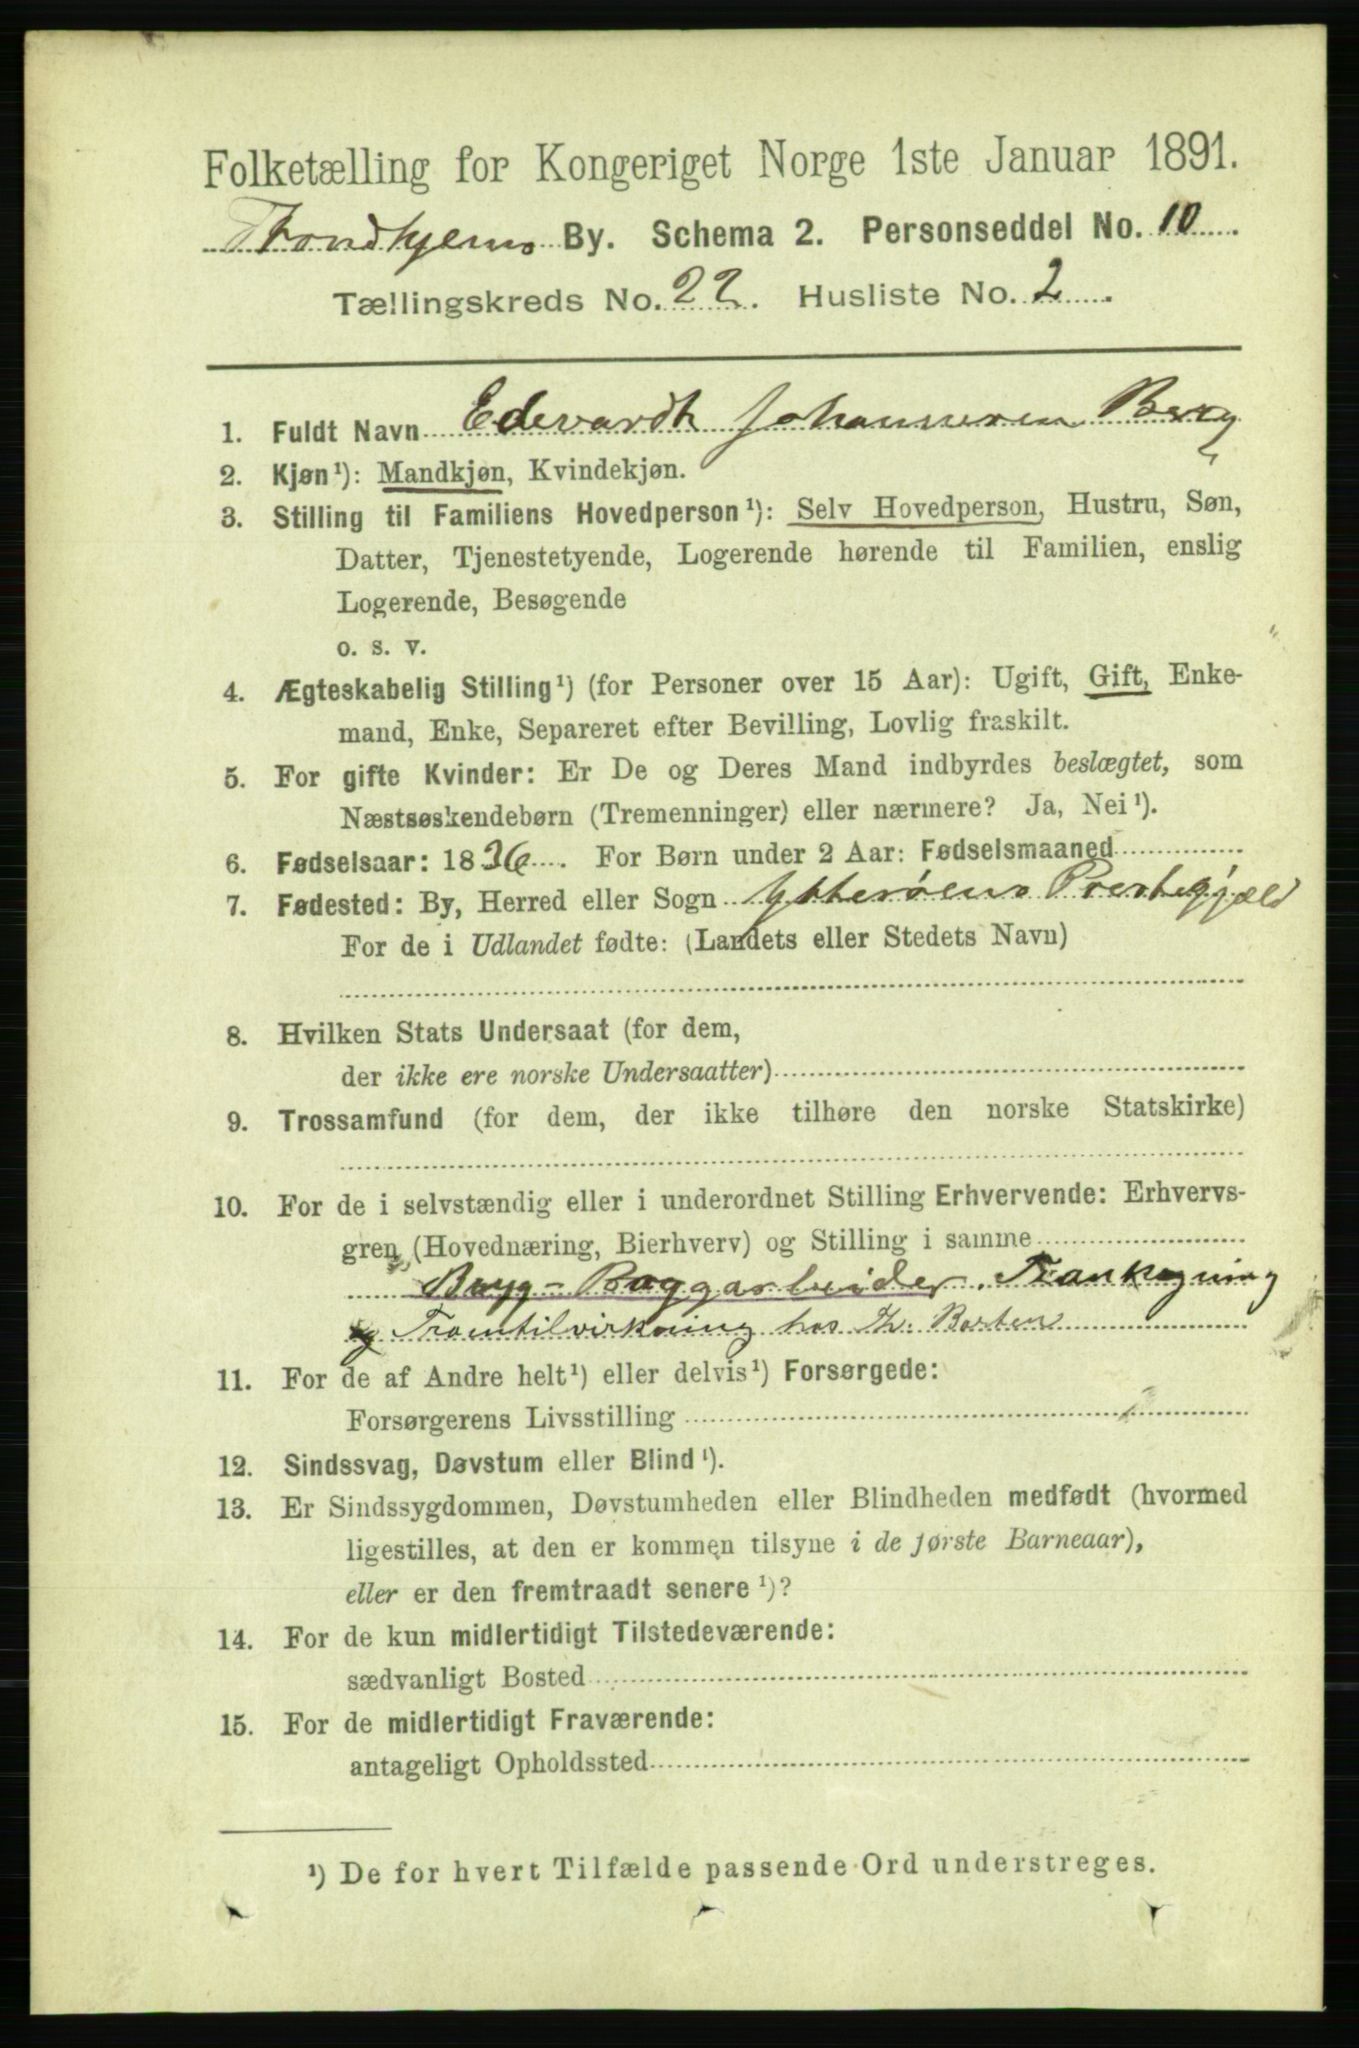 Folketælling for Kongeriget Norge 1ste Januar 1891.
Trondhjems By. Schema 2. Personseddel No. 10.
Tællingskreds No. 22. Husliste No. 2.
1. Fuldt Navn Edevardt Johannesen Berg
2. Kjøn¹): Mandkjøn, Kvindekjøn.
3. Stilling til Familiens Hovedperson¹): Selv Hovedperson, Hustru, Søn,
Datter, Tjenestetyende, Logerende hørende til Familien, enslig
Logerende, Besøgende
o. s. v.
4. Ægteskabelig Stilling¹) (for Personer over 15 Aar): Ugift, Gift, Enke-
mand, Enke, Separeret efter Bevilling, Lovlig fraskilt.
5. For gifte Kvinder: Er De og Deres Mand indbyrdes beslægtet, som
Næstsøskendebørn (Tremenninger) eller nærmere? Ja, Nei¹).
6. Fødselsaar: 1836. For Børn under 2 Aar: Fødselsmaaned
7. Fødested: By, Herred eller Sogn Ytterøens Prestegjæld
For de i Udlandet fødte: (Landets eller Stedets Navn)
8. Hvilken Stats Undersaat (for dem,
der ikke ere norske Undersaatter)
9. Trossamfund (for dem, der ikke tilhøre den norske Statskirke)
10. For de i selvstændig eller i underordnet Stilling Erhvervende: Erhvervs-
gren (Hovednæring, Bierhverv) og Stilling i samme
Bryg-Baggarbeider. Trankogning
og Trantilvirkning hos Th. Barten
11. For de af Andre helt¹) eller delvis¹) Forsørgede:
Forsørgerens Livsstilling
12. Sindssvag, Døvstum eller Blind¹).
13. Er Sindssygdommen, Døvstumheden eller Blindheden medfødt (hvormed
ligestilles, at den er kommen tilsyne i de første Barneaar),
eller er den fremtraadt senere¹)?
14. For de kun midlertidigt Tilstedeværende:
sædvanligt Bosted
15. For de midlertidigt Fraværende:
antageligt Opholdssted
¹) De for hvert Tilfælde passende Ord understreges.